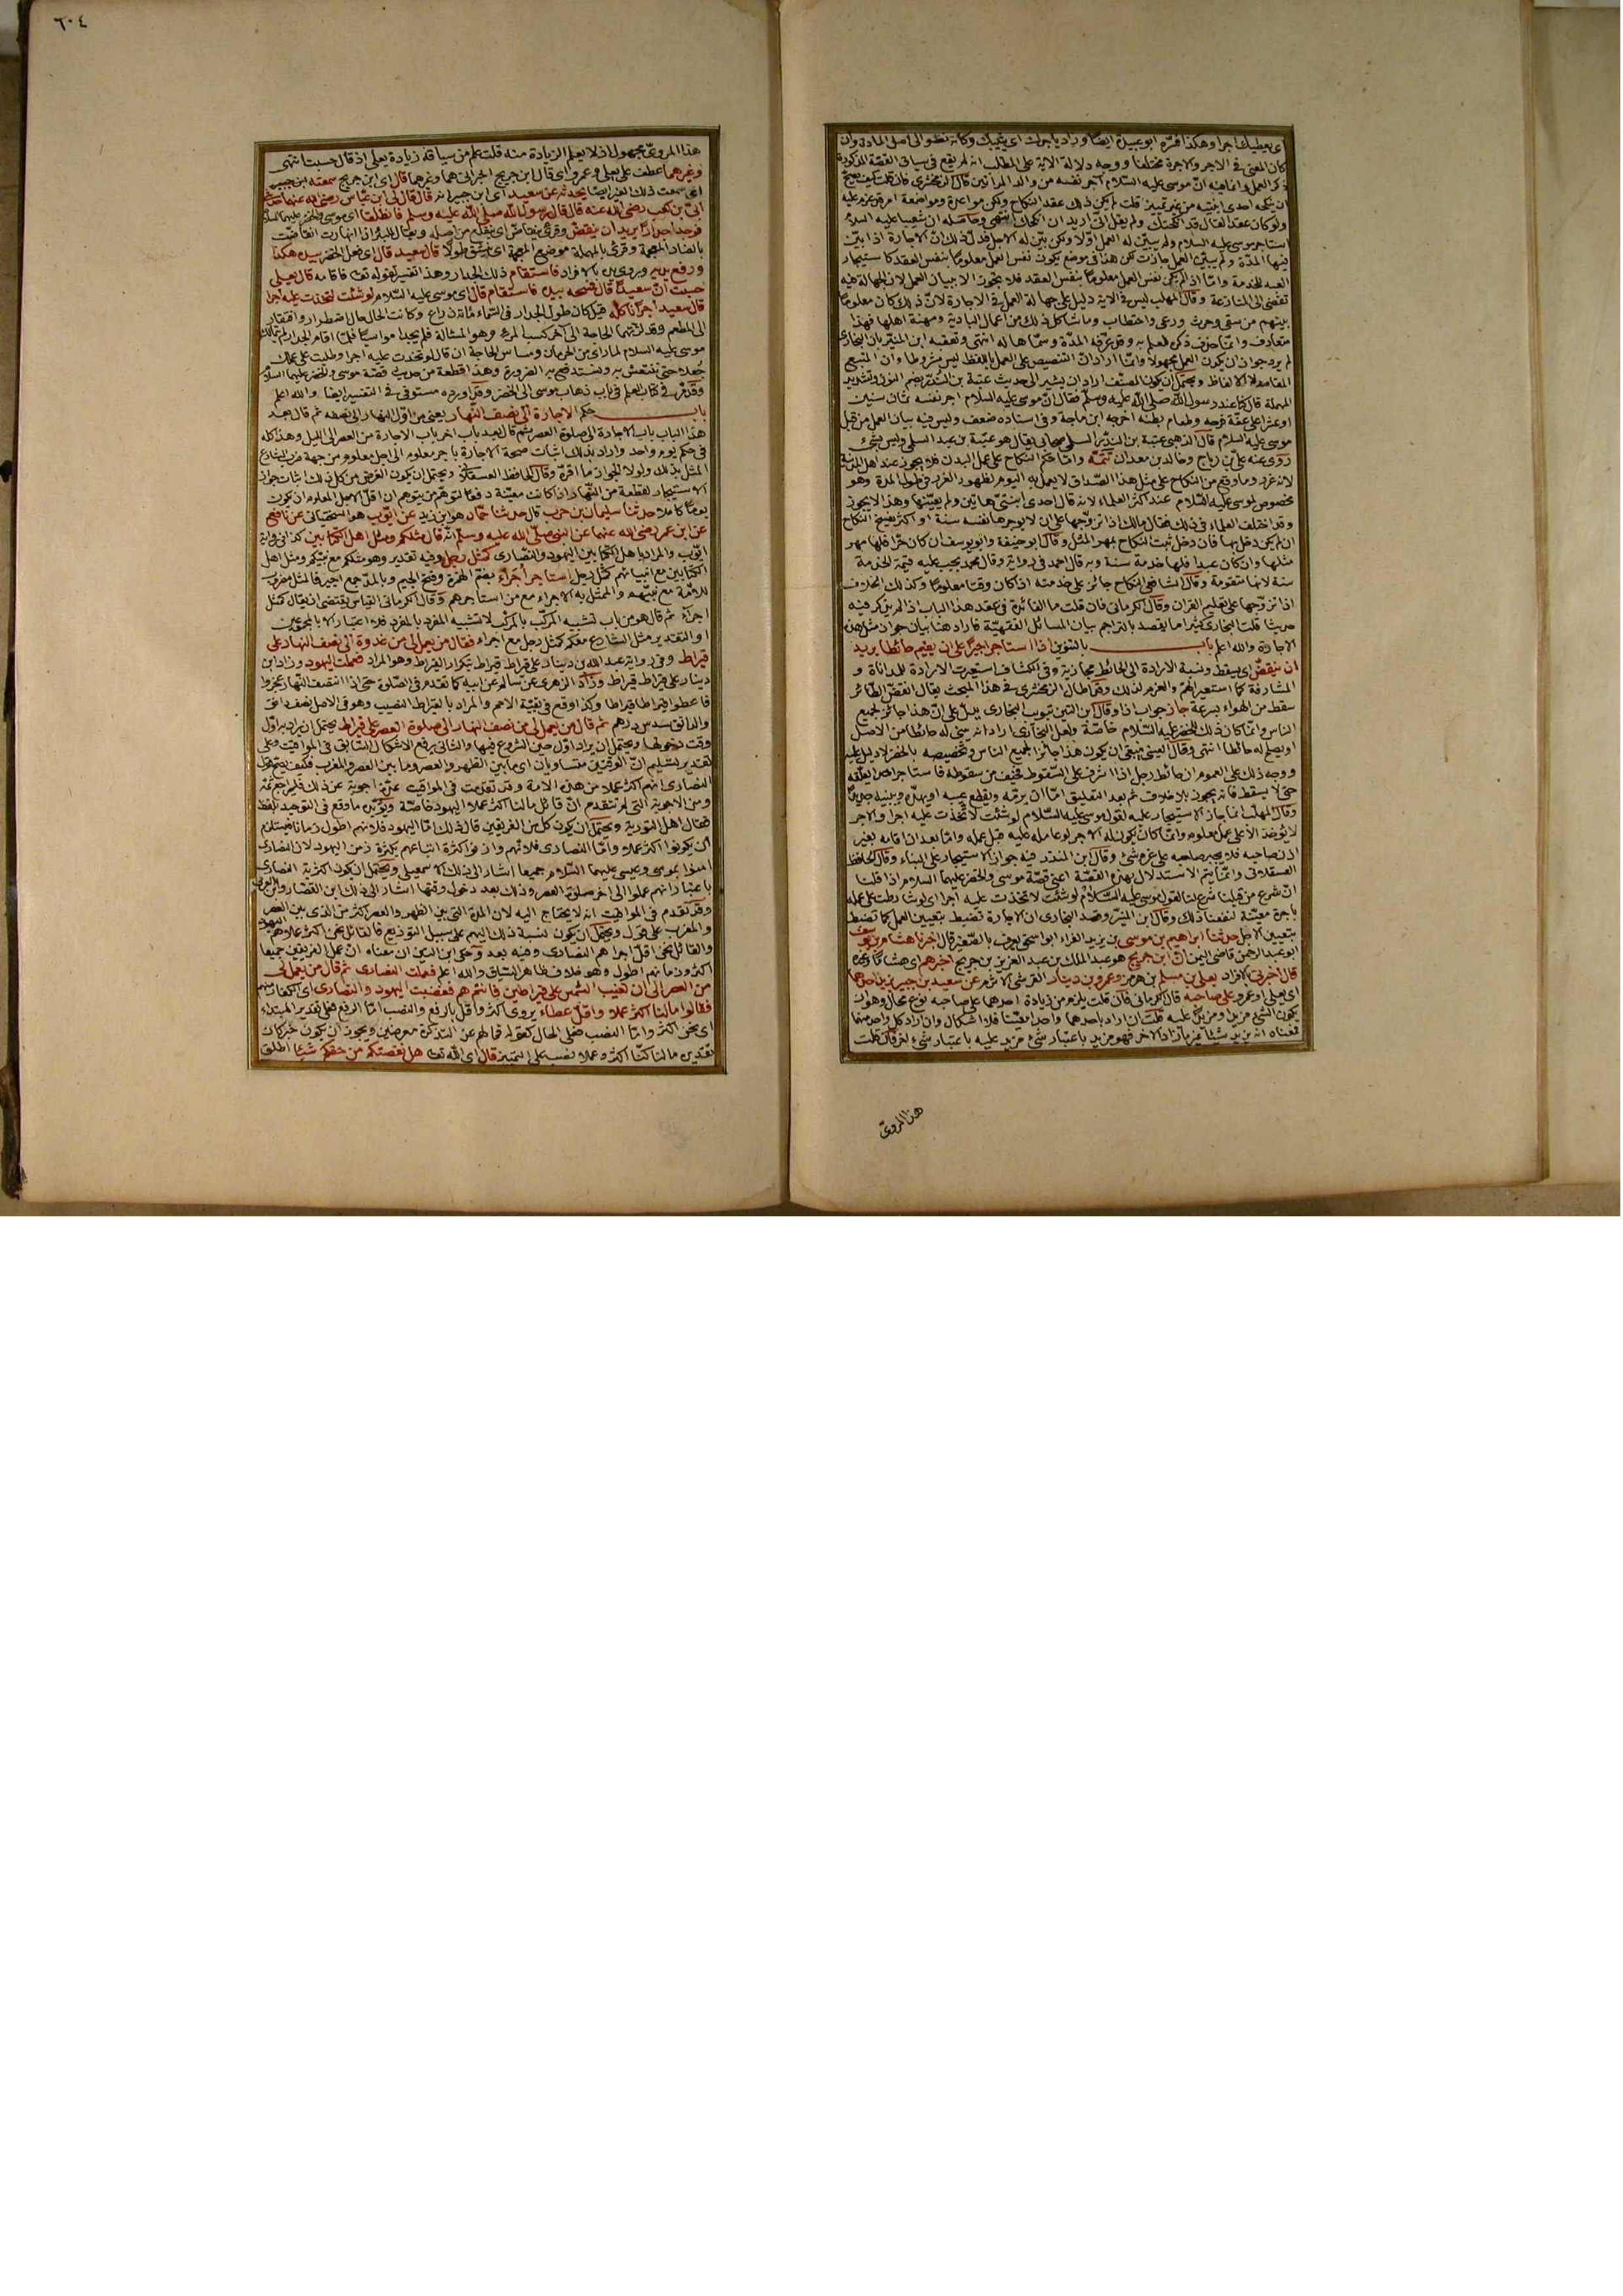 اى يعطيك اجرا وهكذا فسّره ابو عبيدة ايضًا وزاد ياجرك اى يثيبك وكانه نظر الى اصل المادة وان
كان المعنى فى الاجر والاجرة مختلفا ووجه دلالة الاية على المطلب انه لم يقع فى سياق القصة المذكورة
ذكر العمل وانما فيه انّ موسى عليه السّلام آجر نفسه من والد المرأتين قال الزمخشرى فان قلت كيف يصحّ
ان ينكحه احدى ابنتيه من غير تمييز قلت لم يكن ذلك عقد النكاح ولكن مواعدة ومواضعة امر قد عزم عليه
ولو كان عقدا لقال قد انكحتك ولم يقل انّى اريد ان انكحك انتهى وحاصله ان شعيبا عليه السلام
استاجر موسى عليه السلام ولم يبيّن له العمل اوّلا ولكن بيّن له الاجل فدلّ ذلك انّ الاجارة اذا بيّن
فيها المدّة ولم يبيّن العمل جازت لكن هذا فى موضع يكون نفس العمل معلومًا بنفس العقد كاستيجار
العبد للخدمة وامّا اذا لم يكن نفس العمل معلومًا بنفس العقد فلا يجوز الا ببيان العمل لان الجهالة فيه
تفضى الى المنازعة وقال المهلب ليس فى الاية دليل على جهالة العمل فى الاجارة لانّ ذلك كان معلومًا
بينهم من سقى وحرث ورعى واحتطاب وما شاكل ذلك من اعمال البادية ومهنة اهلها فهذا
متعارف وانّما حذف ذكره للعلم به وقد عرّفه المدّة وسمّاها له انتهى وتعقّبه ابن المنيّر بان البخارى
لم يرد جواز ان يكون العمل مجهولا وانّما اراد انّ التنصيص على العمل باللفظ ليس مشروطا وان المتّبع
المقاصد لا الالفاظ ويحتمل ان يكون المصنّف اراد ان يشير الى حديث عتبة بن النّدّر بضم النون وتشديد
المهملة قال كنا عند رسول الله صلى الله عليه وسلّم فقال انّ موسى عليه السلام اجر نفسه ثمان سنين
او عشرا على عفّة فرجه وطعام بطنه اخرجه ابن ماجة وفى اسناده ضعف وليس فيه بيان العمل من قبل
موسى عليه السلام قال الذهبى عتبة بن النّدّر السلمى صحابى يقال هو عتبة بن عبد السلمى وليس بشىء
روى عنه علىّ بن رباح وخالد بن معدان تتمّة وامّا حكم النكاح على عمل البدن فلا يجوز عند اهل المدينة
لانه غرر وما وقع من النكاح على مثل هذا الصّداق لا يعمل به اليوم لظهور الغرر فى طول المدة وهو
مخصوص لموسى عليه السّلام عند اكثر العلماء لانه قال احدى ابنتىّ هاتين ولم يعيّنها وهذا لا يجوز
وقد اختلف العلماء فى ذلك فقال مالك اذا تزوّجها على ان لا يوجرها نفسه سنة او اكثر يفسخ النكاح
ان لم يكن دخل بها فان دخل ثبت النكاح بمهر المثل وقال ابو حنيفة وابو يوسف ان كان حرّا فلها مهر
مثلها وان كان عبدا فلها خدمة سنة وبه قال احمد فى رواية وقال محمد يجب عليه قيمة الخدمة
سنة لانها متقومة وقال الشافعى النكاح جائز على خدمته اذا كان وقتا معلومًا وكذلك الخلاف
اذا تزوّجها على تعليم القران وقال الكرمانى فان قلت ما الفائدة فى عقد هذا الباب اذ لم يذكر فيه
حديثا قلت البخارى كثيرا ما يقصد بالتراجم بيان المسائل الفقهيّة فاراد هنا بيان جواز مثل هذه
الاجارة والله اعلم باب بالتنوين اذا استاجر اجيرًا على ان يقيم حائطا يريد
ان ينقضّ اى يسقط ونسبة الارادة الى الحائط مجازية وفى الكشاف استعيرت الارادة للمداناة و
المشارفة كما استعير الهمّ والعزم لذلك وقد اطال الزمخشرى فى هذا المبحث يقال انقضّ الطّائر
سقط من الهواء بسرعة جاز جواب اذا وقال ابن التين تبويب البخارى يدلّ على انّ هذا جائز لجميع
الناس وانّما كان ذلك للخضر عليه السّلام خاصّة ولعل البخارى اراد انه يبنى له حائطا من الاصل
او يصلح له حائطا انتهى وقال العينى ينبغى ان يكون هذا جائزا لجميع الناس وتخصيصه بالخضر لا دليل عليه
ووجه ذلك على العموم ان حائط رجل اذا اشرف على السّقوط فخيف من سقوطه فاستاجر احدا يعلّقه
حتى لا يسقط فانه يجوز بلا خلاف ثم بعد التعليق امّا ان يرمّه ويقطع عيبه او يهدّه ويبنيه جديدًا
وقال المهلّب انما جاز الاستيجار عليه لقول موسى عليه السّلام لو شئت لاتخذت عليه اجرا والاجر
لا يؤخذ الا على عمل معلوم وانما كان يكون له الاجر لو عامله عليه قبل عمله وامّا بعد ان اقامه بغير
اذن صاحبه فلا يجبر صاحبه على غرم شىء وقال ابن المنذر فيه جواز الاستيجار على البناء وقال الحافظ
العسقلانى وانّما يتم الاستدلال بهذه القصّة اعنى قصّة موسى والخضر عليهما السلام اذا قلنا
انّ شرع من قبلنا شرع لنا لقول موسى عليه السّلام لو شئت لاتخذت عليه اجرا اى لو شارطت على عمله
باجرة معيّنة لنفعنا ذلك وقال ابن المنيّر وقصد البخارى ان الاجارة تنضبط بتعيين العمل كما تنضبط
بتعيين الاجل حدّثنا ابراهيم بن موسى بن يزيد الفراء ابو اسحق يعرف بالصّغير قال اخبرنا هشام بن يوسف
ابو عبد الرحمن قاضى اليمن انّ ابن جريج هو عبد الملك بن عبد العزيز بن جريج اخبرهم اى هشاما وغيره
قال اخبرنى بالافراد يعلى بن مسلم بن هرمز وعمرو بن دينار القرشى الاثرم عن سعيد بن جبير يزيد احدهما
اى يعلى او عمرو على صاحبه قال الكرمانى فان قلت يلزم من زيادة احدهما على صاحبه نوع محال وهو ان
يكون الشىء مزيدا ومزيدًا عليه قلت ان اراد باحدهما واحدا معيّنا فلا اشكال وان اراد كل واحد منهما
فمعناه انه يزيد شيئا غير ما زاد الاخر فهو مزيد باعتبار شىء مزيد عليه باعتبار شىء اخر فان قلت
هذا المروىّ
٦٠٤
هذا المروىّ مجهول اذ لا يعلم الزيادة منه قلت علم من سياقه زيادة يعلى اذ قال حسبت انتهى
وغيرهما عطف على يعلى وعمرو اى قال ابن جريج اخبرانى هما وغيرهما قال اى ابن جريج سمعته ابن جبير
اى سمعت ذلك الغير ايضا يحدّثه عن سعيد اى ابن جبير انه قال قال لى ابن عبّاس رضى الله عنهما حدّثنى
ابىّ بن كعب رضى الله عنه قال قال رسول الله صلى الله عليه وسلم فانطلقا اى موسى والخضر عليهما السلام
فوجدا جدارًا يريد ان ينقضّ وقرئ ينقاضّ اى ينقلع من اصله ويقال للبئر اذا انهارت انقاضّت
بالضاد المعجمة وقرئ بالمهملة موضع المعجمة اى ينشق طولا قال سعيد قال اى فعل الخضر بيده هكذا
ورفع يديه ويروى يده بالافراد فاستقام ذلك الجدار وهذا تفسير لقوله تعالى فاقامه قال يعلى
حسبت انّ سعيدًا قال فمسحه بيده فاستقام قال اى موسى عليه السّلام لو شئت لتخذت عليه اجرا
قال سعيد اجرًا نأكله قيل كان طول الجدار فى السّماء مائة ذراع وكانت الحال حال اضطرار وافتقار
الى المطعم وقد لزّتهما الحاجة الى اخر كسب المرء وهو المسألة فلم يجدا مواسيًا فلمّا اقام الجدار لم يتمالك
موسى عليه السلام لما راى من الحرمان ومساس الحاجة ان قال لو تخذت عليه اجرا وطلبت على عملك
جعلا حتى ننتعش به ونستدفع به الضرورة وهذا قطعة من حديث قصّة موسى والخضر عليهما السلام
وقد مرّ فى كتاب العلم فى باب ذهاب موسى الى الخضر وقد اورده مستوفى فى التفسير ايضا والله اعلم
باب حكم الاجارة الى نصف النّهار يعنى من اوّل النهار الى نصفه ثم قال بعد
هذا الباب باب الاجارة الى صلوة العصر ثم قال بعد باب اخر باب الاجارة من العصر الى الليل وهذا كله
فى حكم يوم واحد واراد بذلك اثبات صحة الاجارة باجر معلوم الى اجل معلوم من جهة ضرب الشارع
المثل بذلك ولولا الجواز ما اقرّه وقال الحافظ العسقلانى ويحتمل ان يكون الغرض من كل ذلك اثبات جواز
الاستيجار لقطعة من النّهار اذا كانت معيّنة دفعًا لتوهّم من يتوهم ان اقلّ الاجل المعلوم ان يكون
يومًا كاملا حدّثنا سليمان بن حرب قال حدثنا حمّاد هو ابن زيد عن ايّوب هو السّختيانى عن نافع
عن ابن عمر رضى الله عنهما عن النبى صلّى الله عليه وسلم انّه قال مثلكم ومثل اهل الكتابين كذا فى رواية
ايّوب والمراد باهل الكتابين اليهود والنصارى كمثل رجل وفيه تقدير وهو مثلكم مع نبيّكم ومثل اهل
الكتابين مع انبيائهم كمثل رجل استاجر اُجَرَاءَ بضمّ الهمزة وفتح الجيم وبالمدّ جمع اجير فالمثل مضروب
للامّة مع نبيّهم والممثّل به الاجراء مع من استاجرهم وقال الكرمانى القياس يقتضى ان يقال كمثل
اجراء ثم قال هو من باب تشبيه المركّب بالمركّب لا تشبيه المفرد بالمفرد فلا اعتبار الا بالمجموعين
او التقدير مثل الشارع معكم كمثل رجل مع اجراء فقال من يعمل لى من غدوة الى نصف النهار على
قيراط وفى رواية عبد الله بن دينار على قيراط قيراط بتكرار القيراط وهو المراد فعملت اليهود وزاد ابن
دينار على قيراط قيراط وزاد الزهرى عن سالم عن ابيه كما تقدم فى الصّلوة حتى اذا انتصف النّهار عجزوا
فاعطوا قيراطا قيراطا وكذا وقع فى بقيّة الامم والمراد بالقيراط النصيب وهو فى الاصل نصف دانق
والدانق سدس درهم ثم قال من يعمل لى من نصف النهار الى صلوة العصر على قيراط يحتمل ان يراد به اوّل
وقت دخولها ويحتمل ان يراد اوّل حين الشروع فيها والثانى يرفع الاشكال السّابق فى المواقيت وعلى
تقدير تسليم انّ الوقتين متساويان اى ما بين الظهر والعصر وما بين العصر والمغرب فكيف يصحّ قول
النصارى انهم اكثر عملا من هذه الامة وقد تقدمت فى المواقيت عدّة اجوبة عن ذلك فليراجع ثمّة
ومن الاجوبة التى لم تتقدم انّ قائل ما لنا اكثر عملا اليهود خاصّة ويؤيّده ما وقع فى التوحيد بلفظ
فقال اهل التورية ويحتمل ان يكون كل من الفريقين قال ذلك امّا اليهود فلانهم اطول زمانا فيستلزم
ان يكونوا اكثر عملا وامّا النصارى فلانّهم وازنوا كثرة اتباعهم بكثرة زمن اليهود لان النصارى
امنوا بموسى وعيسى عليهما السّلام جميعا اشار الى ذلك الاسمعيلى ويحتمل ان يكون اكثرية النصارى
باعتبار انهم عملوا الى اخر صلوة العصر وذلك بعد دخول وقتها اشار الى ذلك ابن القصّار وابن العربى
وقد تقدم فى المواقيت انه لا يحتاج اليه لان المدة التى بين الظهر والعصر اكثر من الذى بين العصر
والمغرب على قول ويحتمل ان يكون نسبة ذلك اليهم على سبيل التوزيع فالقائل نحن اكثر عملا هم اليهود
والقائل نحن اقلّ اجرا هم النصارى وفيه بعد وحكى ابن التين ان معناه انّ عمل الفريقين جميعا
اكثر وزمانهم اطول وهو خلاف ظاهر السّياق والله اعلم فعملت النصارى ثم قال من يعمل لى
من العصر الى ان تغيب الشمس على قيراطين فانتم هم فغضبت اليهود والنصارى اى الكفار منهم
فقالوا ما لنا اكثر عملا واقلّ عطاء يروى اكثر واقلّ بالرفع والنصب امّا الرفع فعلى تقدير المبتداء
اى نحن اكثر وامّا النصب فعلى الحال كقوله فما لهم عن التذكرة معرضين ويجوز ان يكون خبر كان
تقديره ما لنا كنّا اكثر وعملا نصب على التمييز قال اى الله تعالى هل نقصتكم من حقكم شيئا اطلق